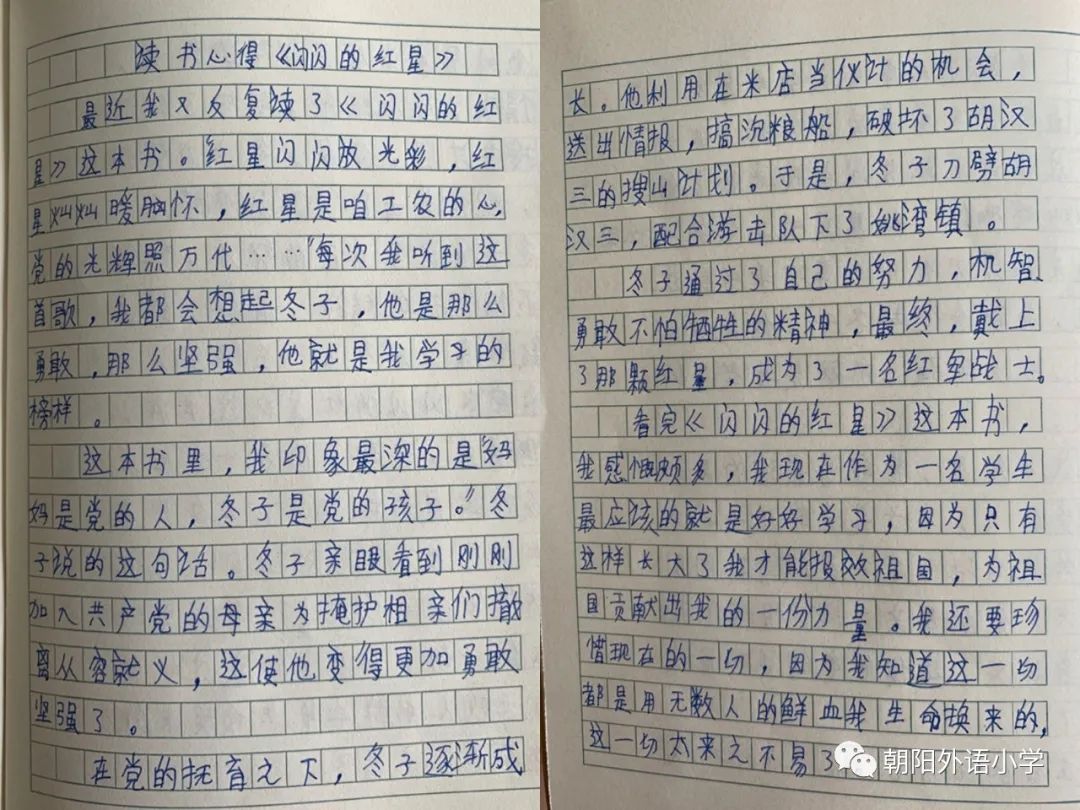 读书心得《闪闪的红星》
最近我又反复读了《闪闪的红
星》这本书。红星闪闪放光彩，红
星灿灿暖脑怀，红星是咱工农的心，
党的光辉照万代……"每次我听到这
首歌，我都会想起冬子，他是那么
勇敢，那么坚强，他就是我学习的
榜样。
这本书里，我印象最深的是"妈
妈是党的人，冬子是党的孩子。"冬
子说的这句话。冬子亲眼看到刚刚
加入共产党的母亲为掩护相亲们撤
离从容就义，这使他变得更加勇敢
坚强了。
在党的抚育之下，冬子逐渐成
长。他利用在米店当伙计的机会，
送出情报，搞沉粮船，破坏了胡汉
三的搜山计划。于是，冬子刀劈胡
汉三，配合游击队下了姚湾镇。
冬子通过了自己的努力，机智
勇敢不怕牺牲的精神，最终，戴上
了那颗红星，成为了一名红军战士。
看完《闪闪的红星》这本书，
我感慨颇多，我现在作为一名学生
最应该的就是好好学习，因为只有
这样长大了我才能报效祖国，为祖
国贡献出我的一份力量。我还要珍
惜现在的一切，因为我知道这一切
都是用无数人的鲜血我生命换来的，
这一切太来之不易了
朝阳外语小学